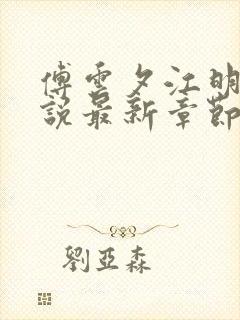 傅雲夕江明
說最新章節
劉亞森